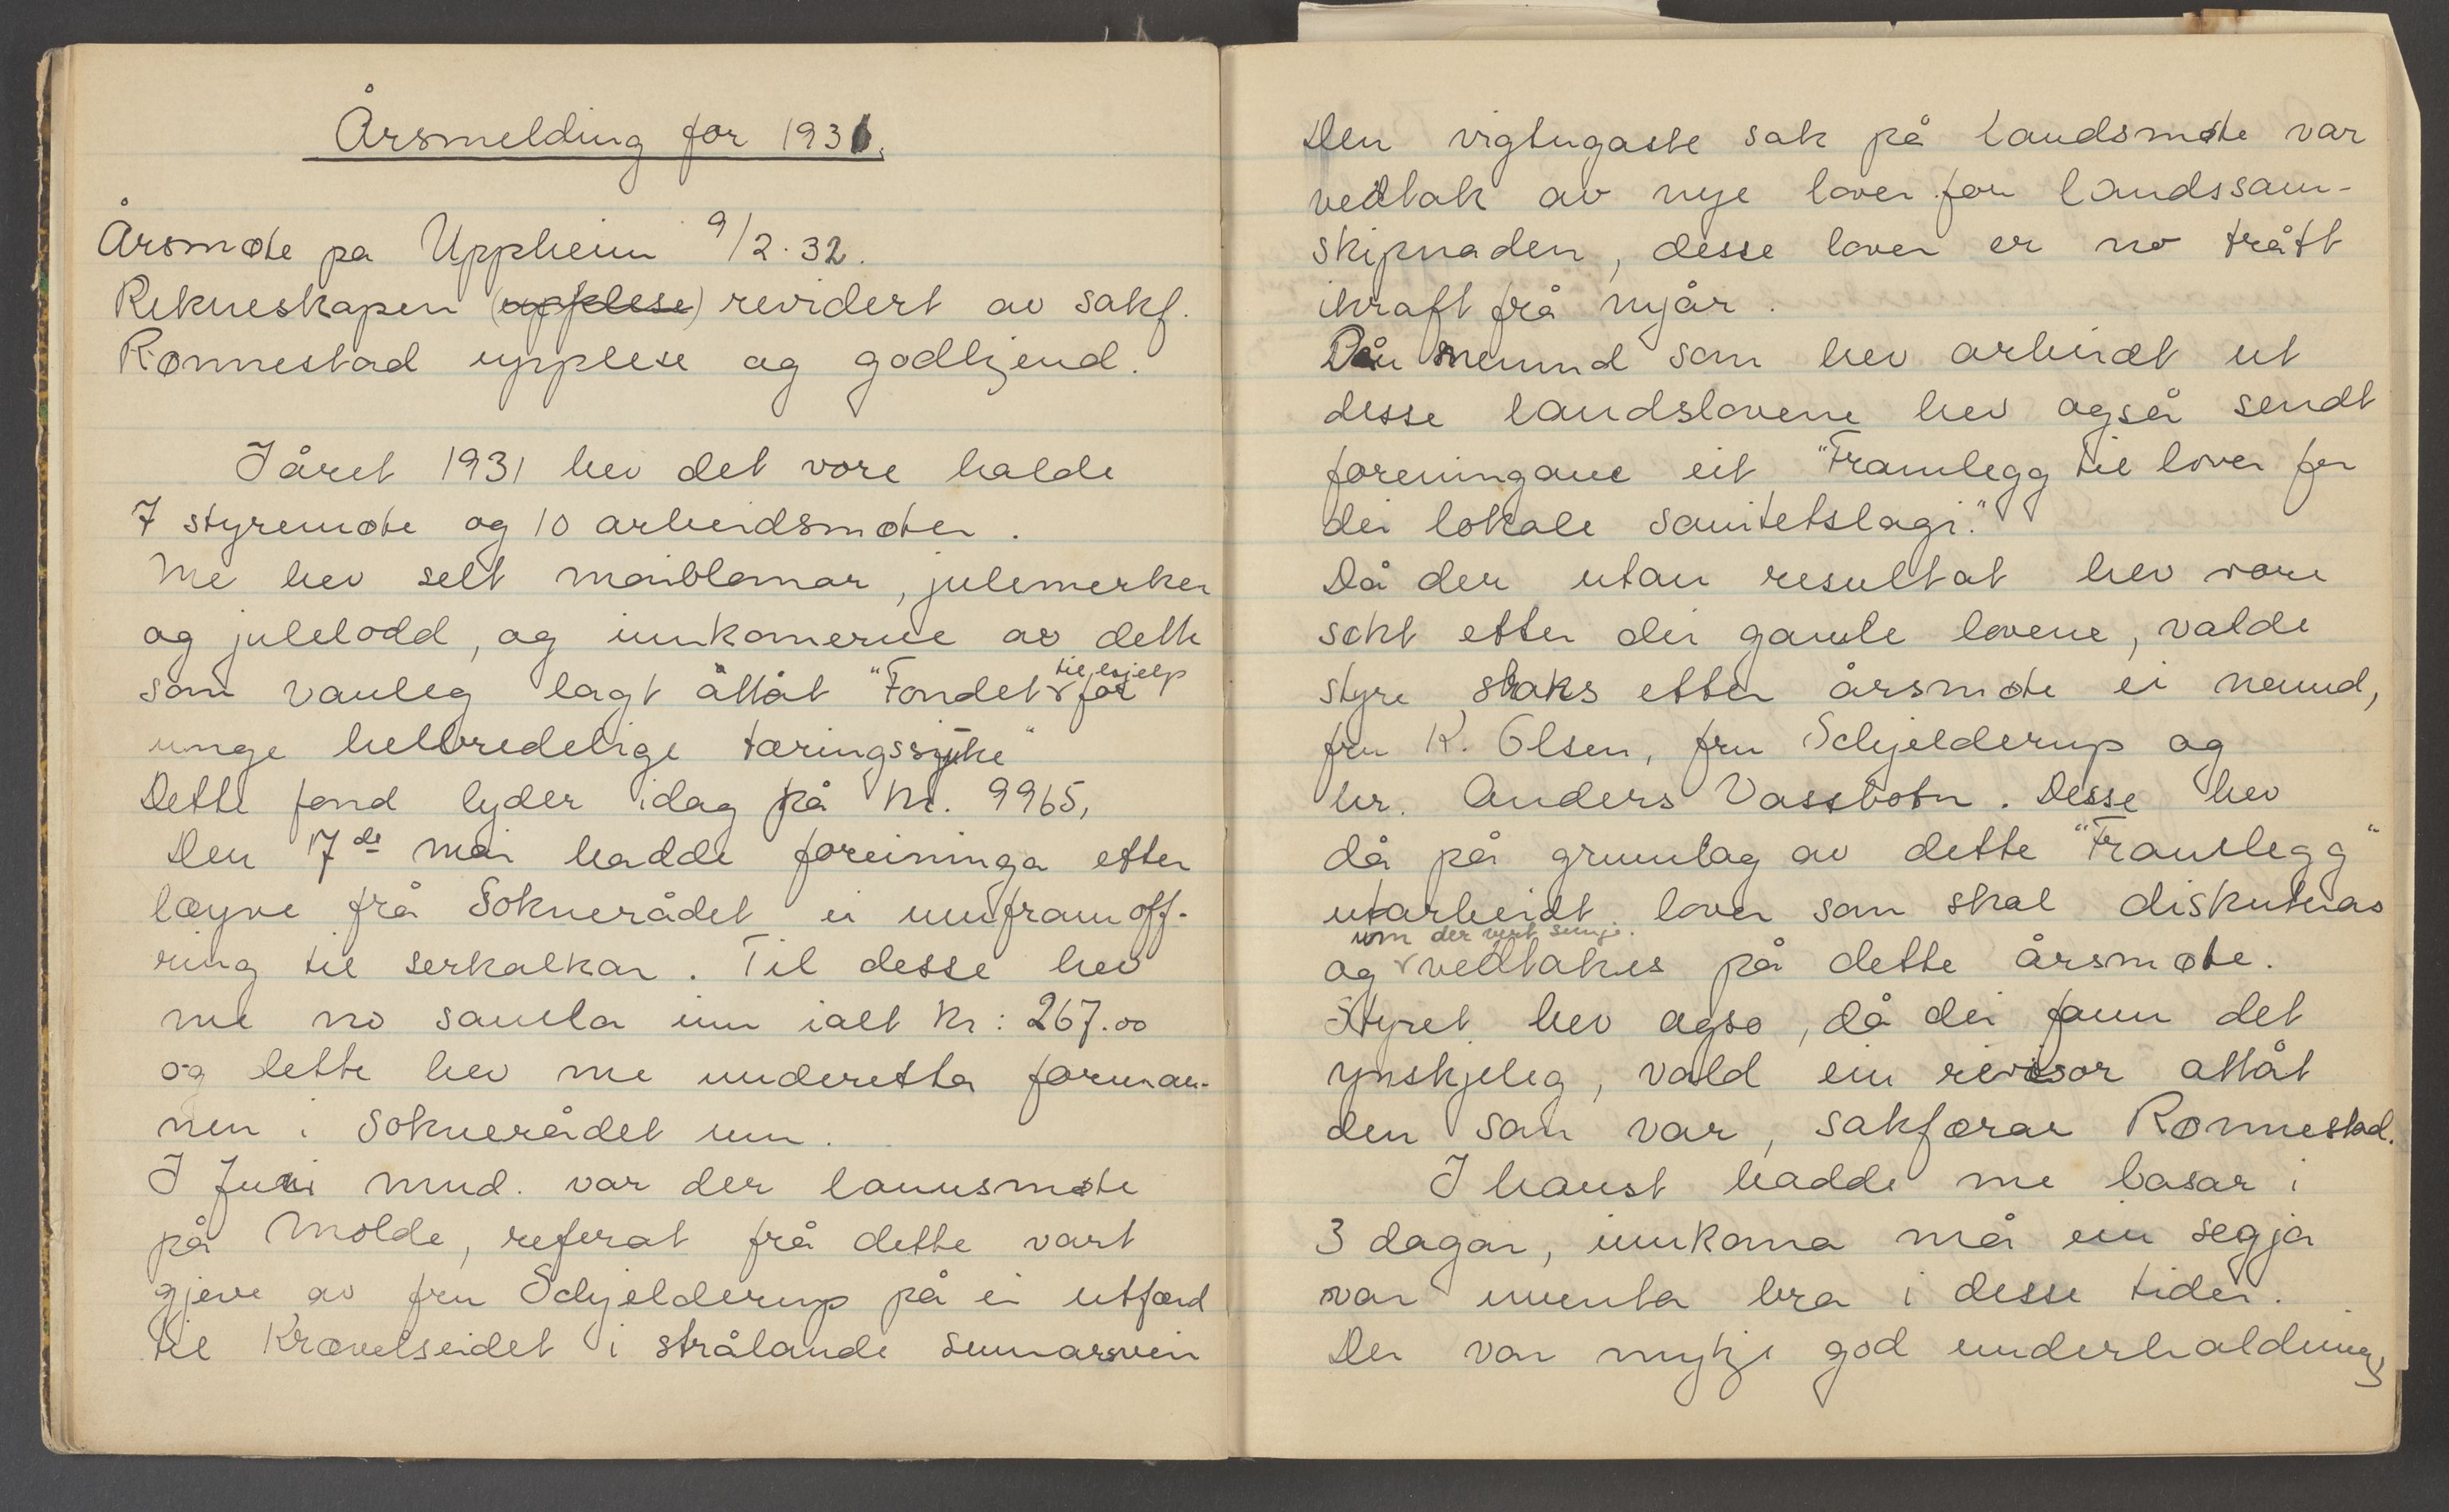 Årsmelding for 1931.
Årsmøte pa Uppheim 9/2.32.
Rekneskapen (upplese) revidert av sakf.
Rønnestad upplese og godkjend.
I året 1931 hev det vore halde
7 styremøte og 10 arbeidsmøter.
Me hev selt maiblomar, julemerker
og julelodd, og innkomerne av dette
til hjelp
som vanleg lagt åttåt "Fondet for
unge helbredelige tæringssjuke"
Dette fond lyder idag på kr. 9965,
Den 17de mai hadde foreininga etter
løyve frå Soknerådet ei innframoff-
ring til serkalkar. Til desse hev
me no samla inn ialt kr: 267.00
og dette hev me underetta forman-
nen i Soknerådet um.
I Juni mnd. var der lannsmøte
på Molde, referat frå dette vart
gjeve av fru Schjelderup på ei utferd
til Krøvelseidet i strålande sumarsvein
Den vigtugaste sak på landsmøte var
vedtak av nye lover for landssam-
skipnaden, desse lover er no trått
ikraft frå nyår.
Den nemnd som hev arbeidt ut
desse landslovene hev også sendt
foreningane eit "Framlegg til lover for
dei lokale sanitetslagi."
Då der utan resultat hev vore
søkt etter dei gamle lovene, valde
styre straks etter årsmøte ei nemnd,
fru K. Olsen, fru Schjelderup og
hr. Anders Vassbotn. Desse hev
då på grunnlag av dette "Framlegg"
utarbeidt lover som skal diskuteras
um der vert semje.
og vedtakes på dette årsmøte.
Styret hev ogso, då dei fann det
ynskjeleg, vald ein revisor attåt
den som var, sakførar Rønnestad.
I haust hadde me basar i
3 dagar, innkoma må ein segja
var uventa bra i desse tider.
Der var mykje god underhaldning,